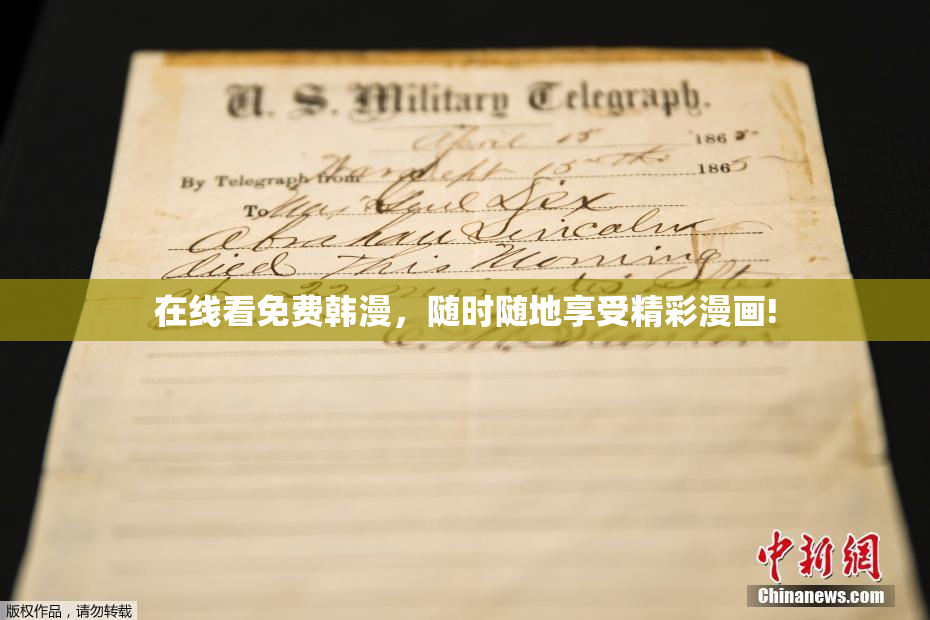 U. S. Military Telegraph.
April 15 1865
By Telegraph from War Dept 15th 1865
To Maj Genl Dix
Abraham Lincoln
died This Morning
at 22 minutes after
在线看免费韩漫，随时随地享受精彩漫画!
E. M. Stanton
中新網
Chinanews.com
版权作品，请勿转载